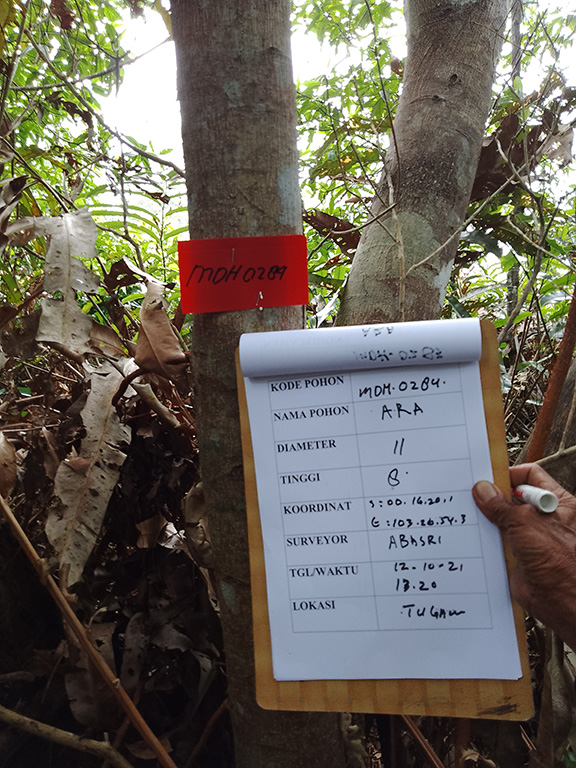 MDH0289
KODE POHON MDH.0289.
NAMA POHON ARA
DIAMETER 11
TINGGI 8.
KOORDINAT S:00.16.20.1
E:103.26.54.3
SURVEYOR ABASRI
TGL/WAKTU 12.10-21
13.20
LOKASI TUGAU